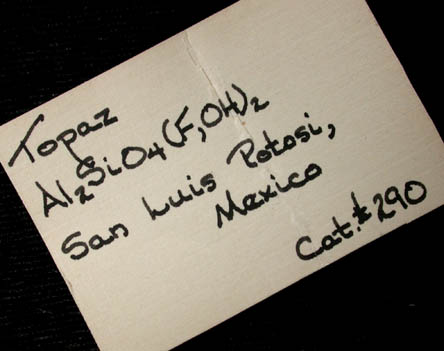 Topaz
Al2SiO4(F,OH)2
San Luis Potosi,
Mexico
Cat.# 290